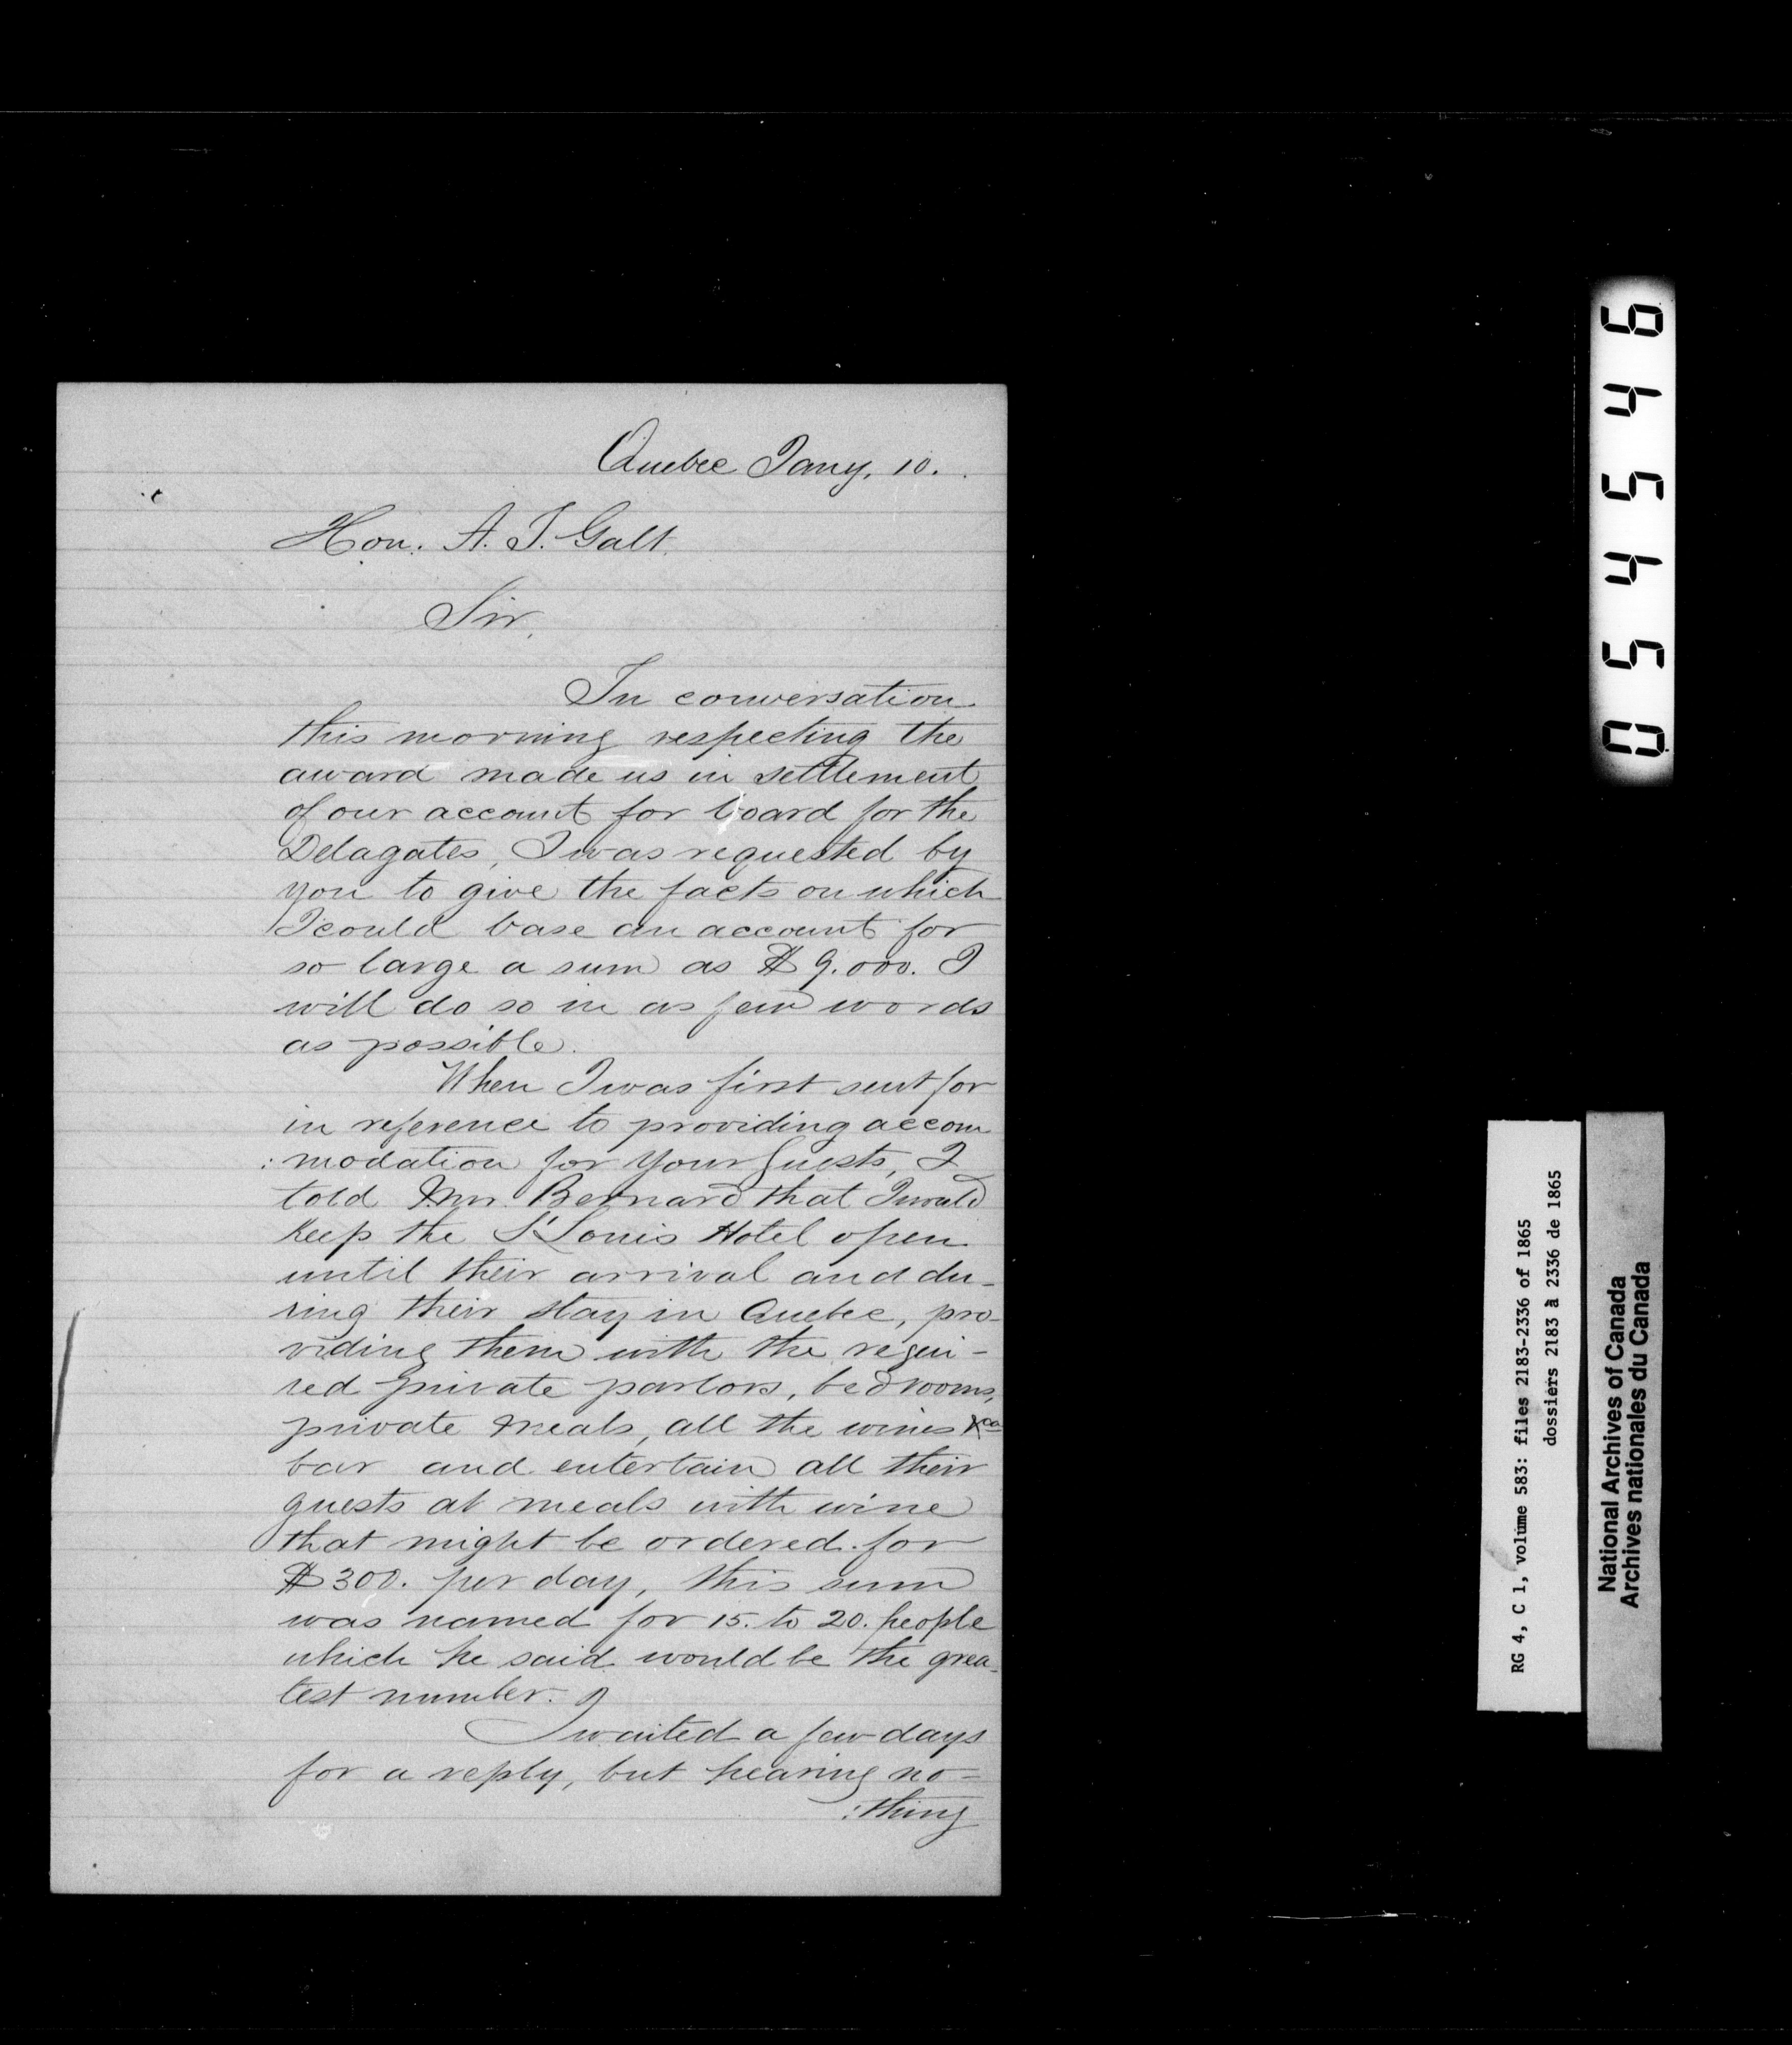 Quebec Jany. 10.
Hon. A. T. Galt.
Sir,
In conversation
this morning respecting the
award made us in settlement
of our account for board for the
Delagates, I was requested by
you to give the facts on which
I could base an account for
so large a sum as $9.000. I
will do so in as few words
as possible.
When I was first sent for
in reference to providing accom
:modation for your guests, I
told Mr. Bernard that I would
keep the St Louis Hotel open
until their arrival and du-
ring their stay in Quebec, pro-
viding them with the requi-
red private parlors, bedrooms,
private meals, all the wines &ca
bar and entertain all their
guests at meals with wine
that might be ordered for
$300. per day, this sum
was named for 15. to 20. people
which he said would be the grea-
test number.
I waited a few days
for a reply, but hearing no=
:thing
054546
RG 4, C 1, volume 583: files 2183-2336 of 1865
dossiers 2183 à 2336 de 1865
National Archives of Canada
Archives nationales du Canada